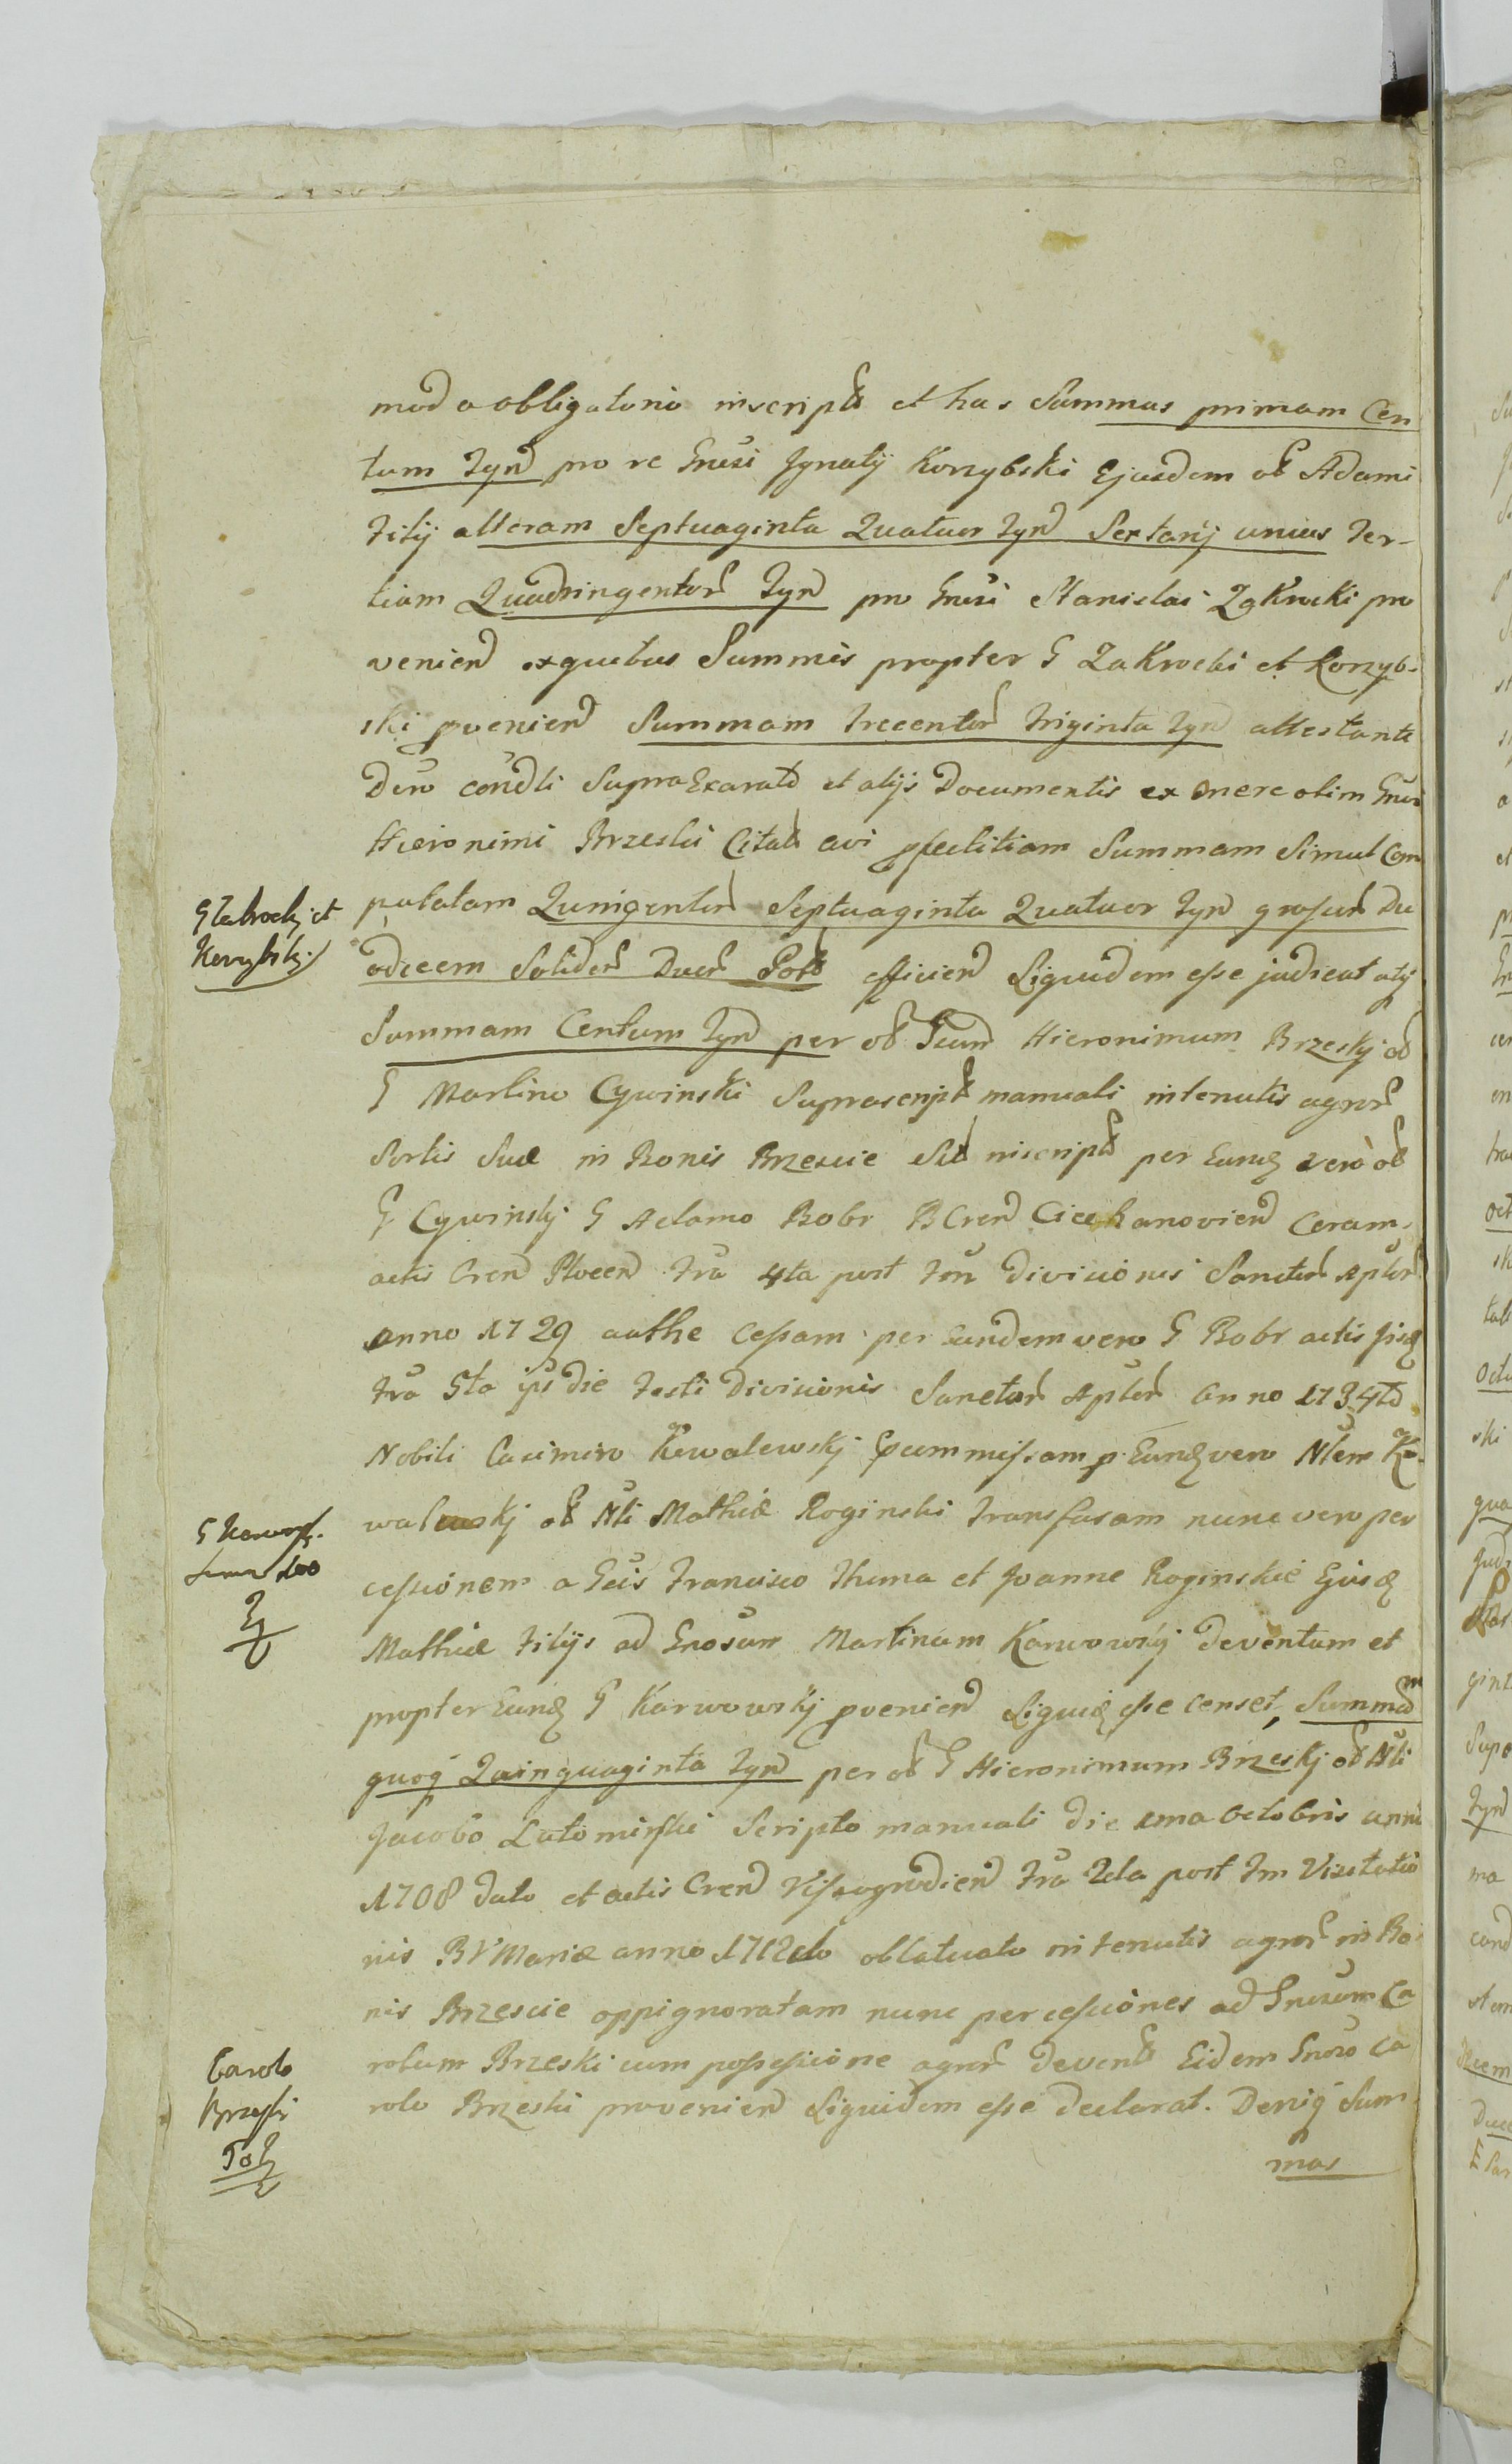 modo obligatorio inscript et has Summas primam Cen
tum tynf pro re Grusi Ignatij Korzybski Ejusdem ol Adami
Filij alteram Septuaginta Quatuor tynf Sextarij unius Ter-
tiam Quadringentor tynf pro Grusi Stanislai Zakrocki pro
veniend exquibus Summis propter G Zakrocki et Korzyb-
ski pveniend Summam Trecentor Triginta tynf attestante
Dcro condli Supra Exarato et alijs Documentis ex onere olim Grusi
Hieronimi Brzeski Citat avi Summam Simul Com
G Zakrocky et
Korzybsky
putatam Quingentor Septuaginta Quatuor tynf grossor Du
odecem Solidor Duor Pol efficiend Liquidam esse judicat atq
Summam Centum tynf per ol Hieronimum Brzesky ol
G Martino Cywinski Suprascript manuali in tenutis agror
Sortis Suae in Bonis Brzescie Sit inscript per Eundq vero ol
G Cywinsky G Adamo Bobr BCren Ciechanovien Coram
actis Cren Plocen Fra 4ta post Fm divisionis Sanctor Aplor
anno 1729 authe Cessam per Eundem vero G Bobr actis jisq
Fra 5ta ips die Festi Divisionis Sanctor Aplor Anno 1734to
Nobili Casimiro Kowalewskj summissam p Eundq vero Nlem Ko-
walewskj ol Nli Mathiae Roginski Transfusam nunc vero per
G Karwows.
suma 100
cessionem a Francisco Thoma et Joanne Roginskie Ejusq
Mathiae Filijs ad Grosum Martinum Karwowskj deventam et
propter Eundq G Karwowskj pveniend Liquidq esse censet, Summam
quoq Quinquaginta tynf per ol G Hieronimum Brzeskj ol Nli
Jacobo Lutominski Scripto manuali die 1ma Octobris anni
1708 dato et actis Cren Vissogrodien Fra 2da post Fm Visitatio
nis BVMariae anno 1712do oblatuato in tenutis agror in Bo
nis Brzescie oppignoratam nunc per cessiones ad Grusum Ca
Carolo
Brzeski
50
rolum Brzeski cum possessione agror devent Eidem Groso Ca
rolo Brzeski proveniend Liquidam esse declarat. Deniq Sum
mas